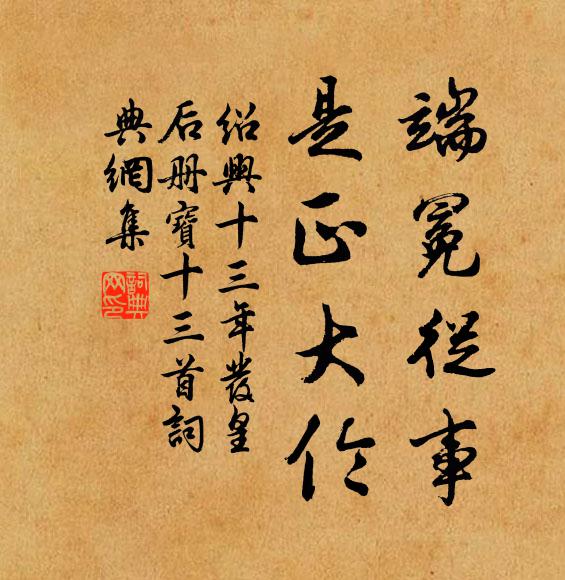 端冕從事
是正大伶
紹興十三年發皇
后册寶十三首詞
典網集
詞典
网印